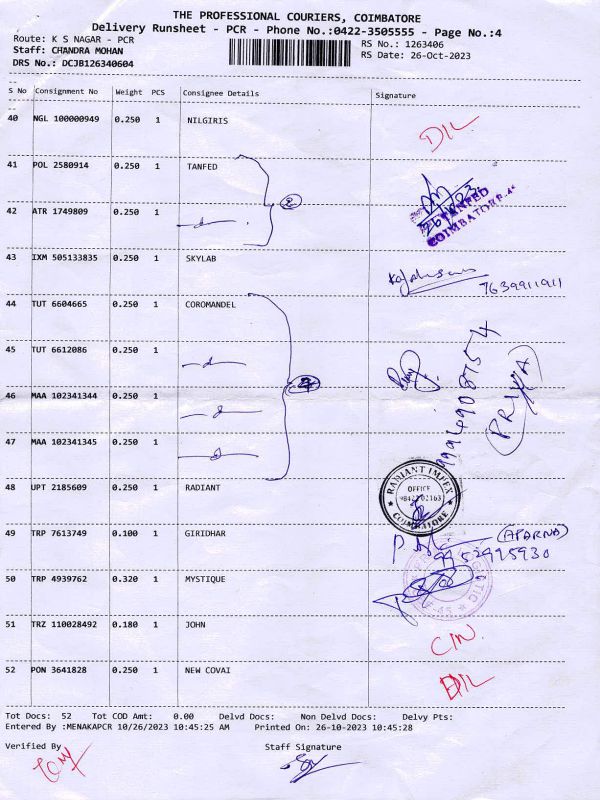 THE PROFESSIONAL COURIERS, COIMBATORE
Delivery Runsheet - PCR - Phone No.:0422-3505555 - Page No.:4
Route: K S NAGAR - PCR
RS No.: 1263406
Staff: CHANDRA MOHAN
RS Date: 26-Oct-2023
DRS No.: DCJB126340604
S No Consignment No Weight PCS Consignee Details Signature
40 NGL 100000949 0.250 1 NILGIRIS
D/L
41 POL 2580914 0.250 1 TANFED
2
TANFED
COIMBATORE
42 ATR 1749809 0.250 1
43 IXM 505133835 0.250 1 SKYLAB
7639911911
44 TUT 6604665 0.250 1 COROMANDEL
45 TUT 6612086 0.250 1
PRIYA
46 MAA 102341344 0.250 1
47 MAA 102341345 0.250 1
48 UPT 2185609 0.250 1 RADIANT
RADIANT IMPEX
OFFICE
COIMBATORE
49 TRP 7613749 0.100 1 GIRIDHAR
(APARNA)
9952995930
50 TRP 4939762 0.320 1 MYSTIQUE
51 TRZ 110028492 0.180 1 JOHN
C/N.
52 PON 3641828 0.250 1 NEW COVAI
D/L
Tot Docs: 52 Tot COD Amt: 0.00 Delvd Docs: Non Delvd Docs: Delvy Pts:
Entered By :MENAKAPCR 10/26/2023 10:45:25 AM Printed On: 26-10-2023 10:45:28
Verified By Staff Signature